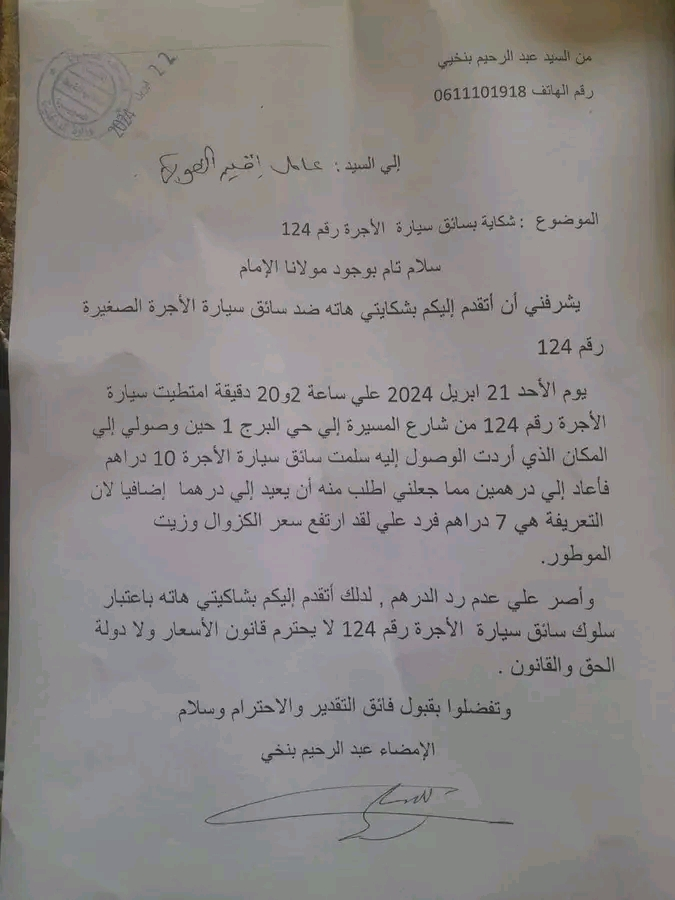 من السيد عبد الرحيم بنخيي
رقم الهاتف 0611101918
22 ابريل 2024
إلي السيد : عامل إقليم
الموضوع : شكاية بسائق سيارة الأجرة رقم 124
سلام تام بوجود مولانا الإمام
يشرفني أن أتقدم إليكم بشكايتي هاته ضد سائق سيارة الأجرة الصغيرة
رقم 124
يوم الأحد 21 ابريل 2024 علي ساعة 2و20 دقيقة امتطيت سيارة
الأجرة رقم 124 من شارع المسيرة إلي حي البرج 1 حين وصولي إلي
المكان الذي أردت الوصول إليه سلمت سائق سيارة الأجرة 10 دراهم
فأعاد إلي درهمين مما جعلني اطلب منه أن يعيد إلي درهما إضافيا لان
التعريفة هي 7 دراهم فرد علي لقد ارتفع سعر الكزوال وزيت
الموطور.
وأصر علي عدم رد الدرهم , لدلك أتقدم إليكم بشاكيتي هاته باعتبار
سلوك سائق سيارة الأجرة رقم 124 لا يحترم قانون الأسعار ولا دولة
الحق والقانون .
وتفضلوا بقبول فائق التقدير والاحترام وسلام
الإمضاء عبد الرحيم بنخي